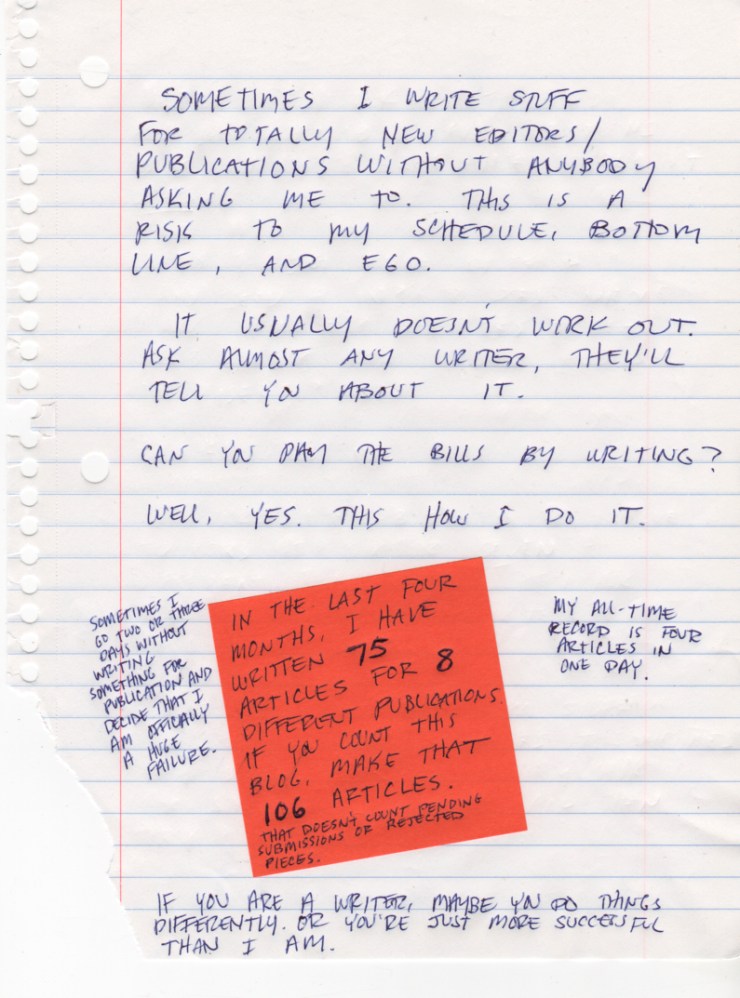 SOMETIMES I WRITE STUFF
FOR TOTALLY NEW EDITORS/
PUBLICATIONS WITHOUT ANYBODY
ASKING ME TO. THIS IS A
RISK TO MY SCHEDULE, BOTTOM
LINE, AND EGO.
IT USUALLY DOESN'T WORK OUT.
ASK ALMOST ANY WRITER, THEY'LL
TELL YOU ABOUT IT.
CAN YOU PAY THE BILLS BY WRITING?
WELL, YES. THIS HOW I DO IT.
SOMETIMES I
GO TWO OR THREE
DAYS WITHOUT
WRITING
SOMETHING FOR
PUBLICATION AND
DECIDE THAT I
AM OFFICIALLY
A HUGE
FAILURE.
IN THE LAST FOUR
MONTHS, I HAVE
WRITTEN 75
ARTICLES FOR 8
DIFFERENT PUBLICATIONS.
IF YOU COUNT THIS
BLOG, MAKE THAT
106 ARTICLES.
THAT DOESN'T COUNT PENDING
SUBMISSIONS OR REJECTED
PIECES.
MY ALL-TIME
RECORD IS FOUR
ARTICLES IN
ONE DAY.
IF YOU ARE A WRITER, MAYBE YOU DO THINGS
DIFFERENTLY. OR YOU'RE JUST MORE SUCCESSFUL
THAN I AM.